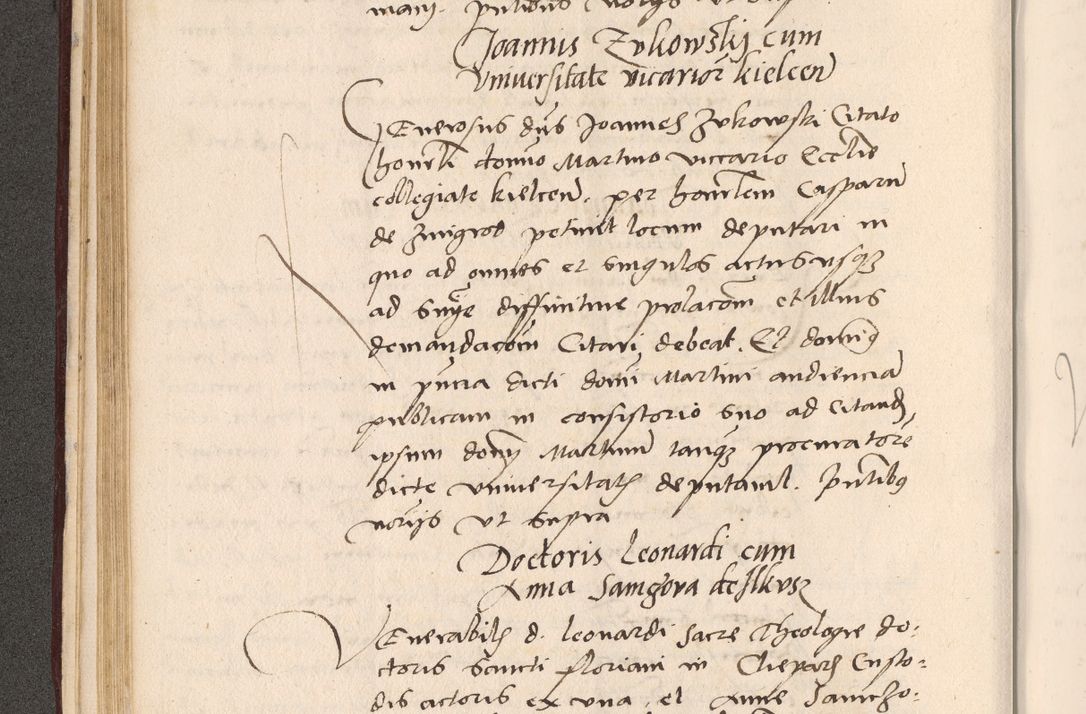 Joannis Zukowskij cum
Universitate vicarior kielcen
Generosus dns Joannes Zukowski Citato
honrli domno Martino viccario Ecclie
collegiate kielcen. per honrlem Casparu
de Zmigrod petiuit locum deputari in
quo ad omnes et singulos actus usqz
ad snie diffinitiue prolacom et illius
demandacom Citari debeat. Et domin9
in pncia dicti domi Martini audiencia
publicam in consistorio suo ad Citand,
ipsum domn Martinu tanqz procuratore
dicte vniuersitatis deputauit. Pntibus
notijs vt supra
Doctoris Leonardi cum
Anna de Ilkusz
Venerabilis d. Leonardi Sacre Theologie do:
ctoris Sancti Floriani in Cleparz Custo:
dis actoris ex vna, et Anne